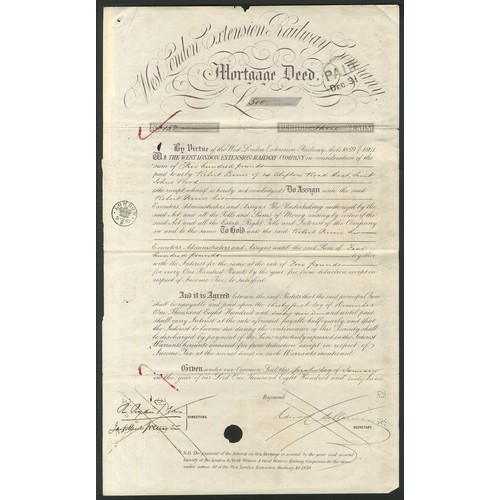 West London Extension Railway Company
Mortgage Deed.
£ 500
PAID
DEC. 31
By Virtue of the West London Extension Railway Acts 1859 & 1861
We THE WEST LONDON EXTENSION RAILWAY COMPANY in consideration of the
sum of Five hundred pounds
paid to us by Robert Road Saint
Johns Wood
(the receipt whereof is hereby acknowledged) Do Assign unto the said
Robert his
Executors, Administrators and Assigns The Undertaking authorized by the
said Act and all the Tolls and Sums of Money arising by virtue of the
said Act and all the Estate, Right, Title and Interest of the Company
in and to the same To Hold unto the said Robert his
Executors, Administrators and Assigns until the said Sum of Five
hundred pounds together
with the Interest for the same at the rate of Four pounds
for every One Hundred Pounds by the year free from deduction except in
respect of Income Tax be satisfied.
And it is Agreed between the said Parties that the said principal Sum
shall be repayable and paid upon the thirty first day of December
One Thousand Eight Hundred and and until paid
shall carry Interest at the rate aforesaid payable half yearly and that
the Interest to become due during the continuance of this Security shall
be discharged by payment of the Sums respectively expressed in the Interest
Warrants hereunto annexed free from deduction except in respect of
Income Tax at the several times in such Warrants mentioned.
Given under our Common Seal this first day of January
in the year of our Lord One Thousand Eight Hundred and sixty
Registered
DIRECTORS.
SECRETARY.
N.B. The payment of the Interest on this Mortgage is secured by the year and several
liability of the London & North Western & Great Western Railway Companies
under section of the West London Extension Railway Act 1859.